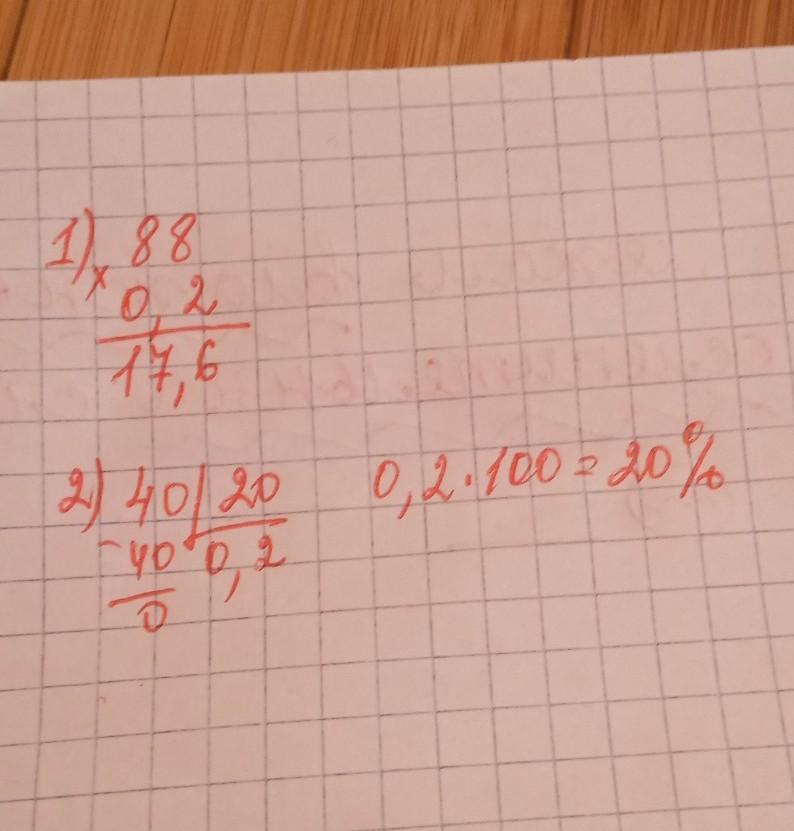 1) 88
× 0,2
17,6
2) 40 | 20 0,2 · 100 = 20%
- 40 0,2
0